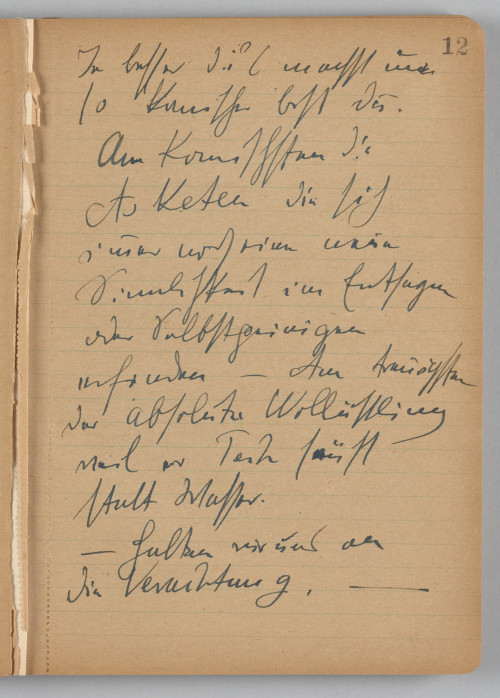 12
Je besser machst um
so Komischer bist du.
Am Komischsten die
Asketen die sich
immer noch eine neue
Sinnlichkeit im Entsagen
oder Selbstpeinigen
erfinden — Am traurigsten
der absolute Wollüstling
weil er säuft
statt Wasser.
— Halten wir uns an
die Verachtung. —